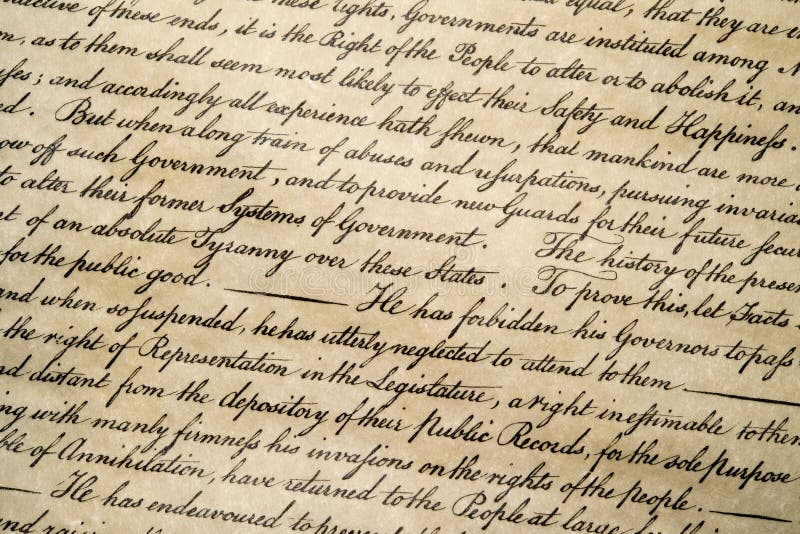 equal, that they are
these rights, Governments are instituted among
of these ends, it is the Right of the People to alter or to abolish it, an
n, as to them shall seem most likely to effect their Safety and Happineſs.
uſes; and accordingly all experience hath ſhewn, that mankind are more
ed. But when a long train of abuses and uſurpations, pursuing invaria
ow off such Government, and to provide new Guards for their future secur
to alter their former Systems of Government. The history of the presen
t of an absolute Tyranny over these States. To prove this, let Facts
for the public good. — He has forbidden his Governors to paſs
and when so suspended, he has utterly neglected to attend to them —
the right of Representation in the Legislature, a right ineſtimable to them
nd distant from the depository of their public Records, for the sole purpose
ng with manly firmneſs his invaſions on the rights of the people. —
ble of Annihilation, have returned to the People at large
— He has endeavoured to
and
dreamstime